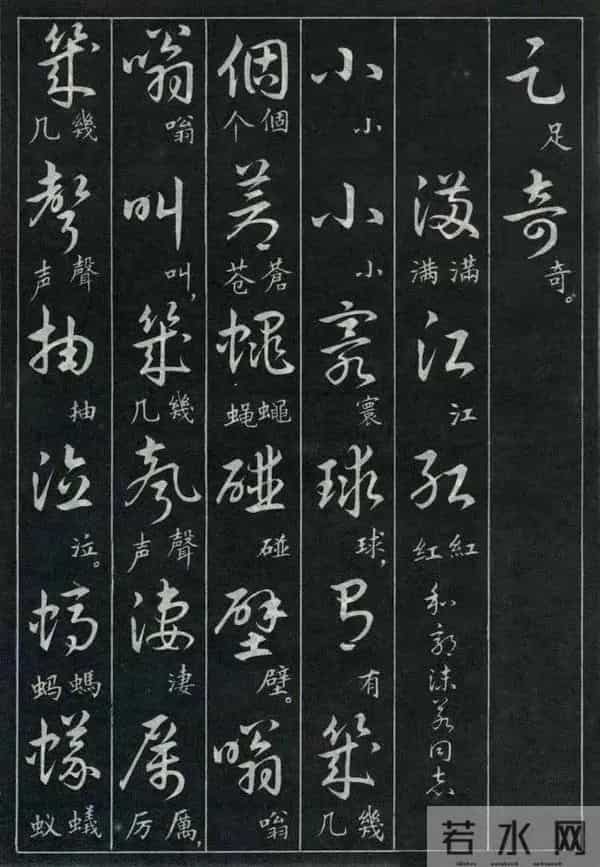 足足奇奇。
滿滿满江江紅紅红和郭沫若同志
小小小小寰寰球球，有有幾幾几
個個个蒼蒼苍蠅蠅蝇碰碰壁壁。嗡嗡
嗡嗡叫叫，幾幾几聲聲声淒淒厲厲，厉
幾幾几聲聲声抽抽泣泣。螞螞蚂蟻蟻蚁
若水网